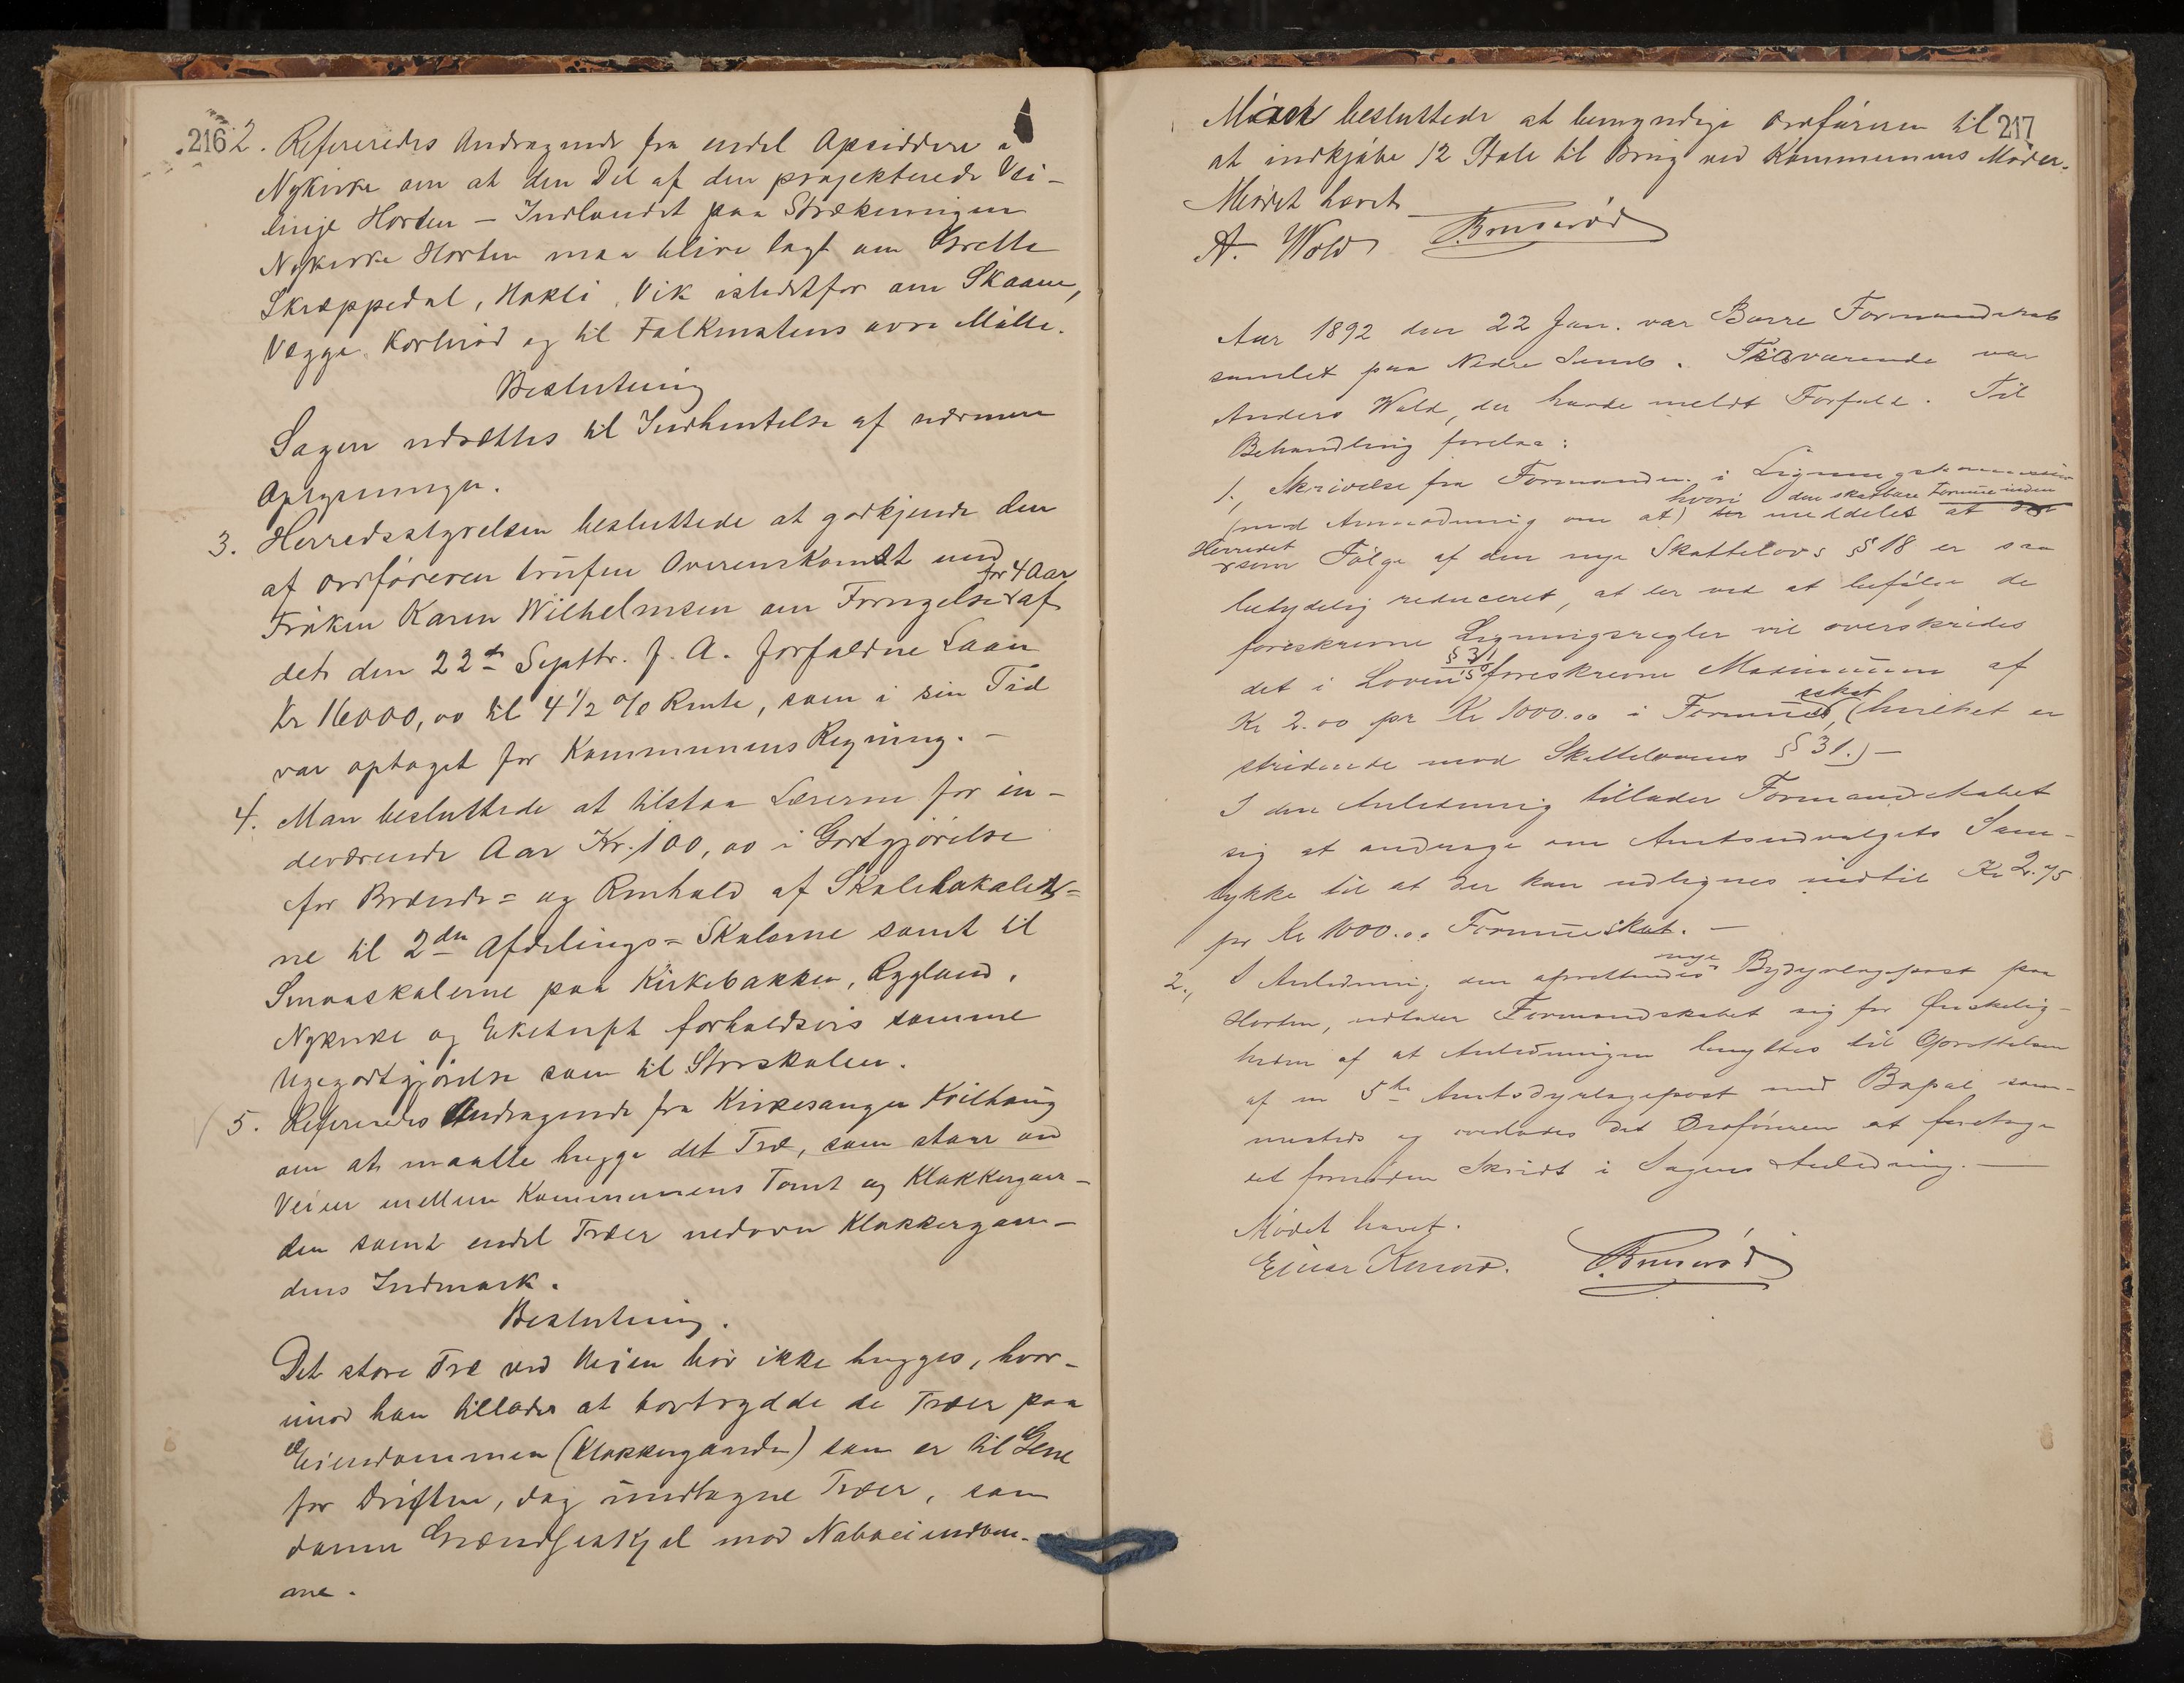 216
2. Refereredes Andragende fra endel Opsiddere i
Nykirke om at den Del af den projekterede Vei-
linje Horten - Indlandet paa Strækningen
Nykirke Horten maa blive lagt om Grette
Skræppedal, Hakli, Vik istedetfor om Skaane,
Vegge, Korterød og til Falkenstens øvre Mølle.
Beslutning
Sagen udsættes til Indhentelse af nærmere
Oplysninger.
3. Herredsstyrelsen besluttede at godkjende den
af Ordføreren trufne Overenskomst med
Frøken Karen Wilhelmsen om Fornyelse for 4 Aar af
det den 22de Septbr. f. A. forfaldne Laan
Kr 16000,00 til 4 1/2 % Rente, som i sin Tid
var optaget for Kommunens Regning. -
4. Man besluttede at tilstaa Lærerne for in-
deværende Aar Kr. 100,00 i Godtgjørelse
for Brænde= og Renhold af Skolelokaler=
ne til 2den Afdelings= Skolerne samt til
Smaaskolerne paa Kirkebakken, Rygland,
Nykirke og Eketuft forholdsvis samme
Ugegodtgjørelse som til Storskolen.
5. Refereredes Andragende fra Kirkesanger Kvilhaug
om at maatte hugge det Træ, som staar ved
Veien mellem Kommunens Tomt og Klokkergaar-
den samt endel Træer nedover Klokkergaar-
dens Indmark.
Beslutning.
Det store Træ ved Veien bør ikke hugges, hvor-
imod han tillades at bortrydde de Træer paa
Eiendommen (Klokkergaarden) som er til Gene
for Driften, dog undtagne Træer, som
danne Grændseskjel mod Naboeiendom-
me.
217
Man besluttede at bemyndige Ordføreren til
at indkjøbe 12 Stole til Brug ved Kommunens Møder.
Mødet hævet
A. Wold Brunerød
Aar 1892 den 22 Jan. var Borre Formandskab
samlet paa Nedre Semb. Fraværende var
Anders Wold, der havde meldt Forfald. Til
Behandling forelaa:
1., Skrivelse fra Formanden i Ligningskommission
(med Anmodning om at) hvori der meddeles at den skatbare Formue inden
Herredet som Følge af den nye Skattelovs § 18 er saa
betydelig reduceret, at der ved at befølge de
foreskrevne Ligningsregler vil overskrides
det i Lovens § 31 foreskrevne Maximum af
Kr 2.00 pr Kr 1000.00 i Formuesskat, (hvilket er
stridende mod Skattelovens § 31.) -
I den Anledning tillader Formandskabet
sig at andrage om Amtsudvalgets Sam-
tykke til at der kan udlignes indtil Kr 2.75
pr Kr 1000.00 Formueskat. -
2., I Anledning den oprettendes nye Bydyrlægepost paa
Horten, udtaler Formandskabet sig for Ønskelig-
heden af at Anledningen benyttes til Oprettelsen
af en 5te Amtsdyrlægepost med Bopæl sam-
mesteds og overlades det Ordføreren at foretage
det fornødne Skridt i Sagens Anledning. -
Mødet hævet.
Brunerød